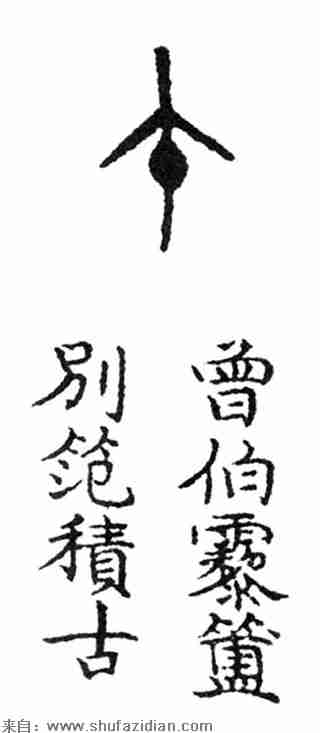 午
曾伯簠
別笵積古
来自：www.shufazidian.com